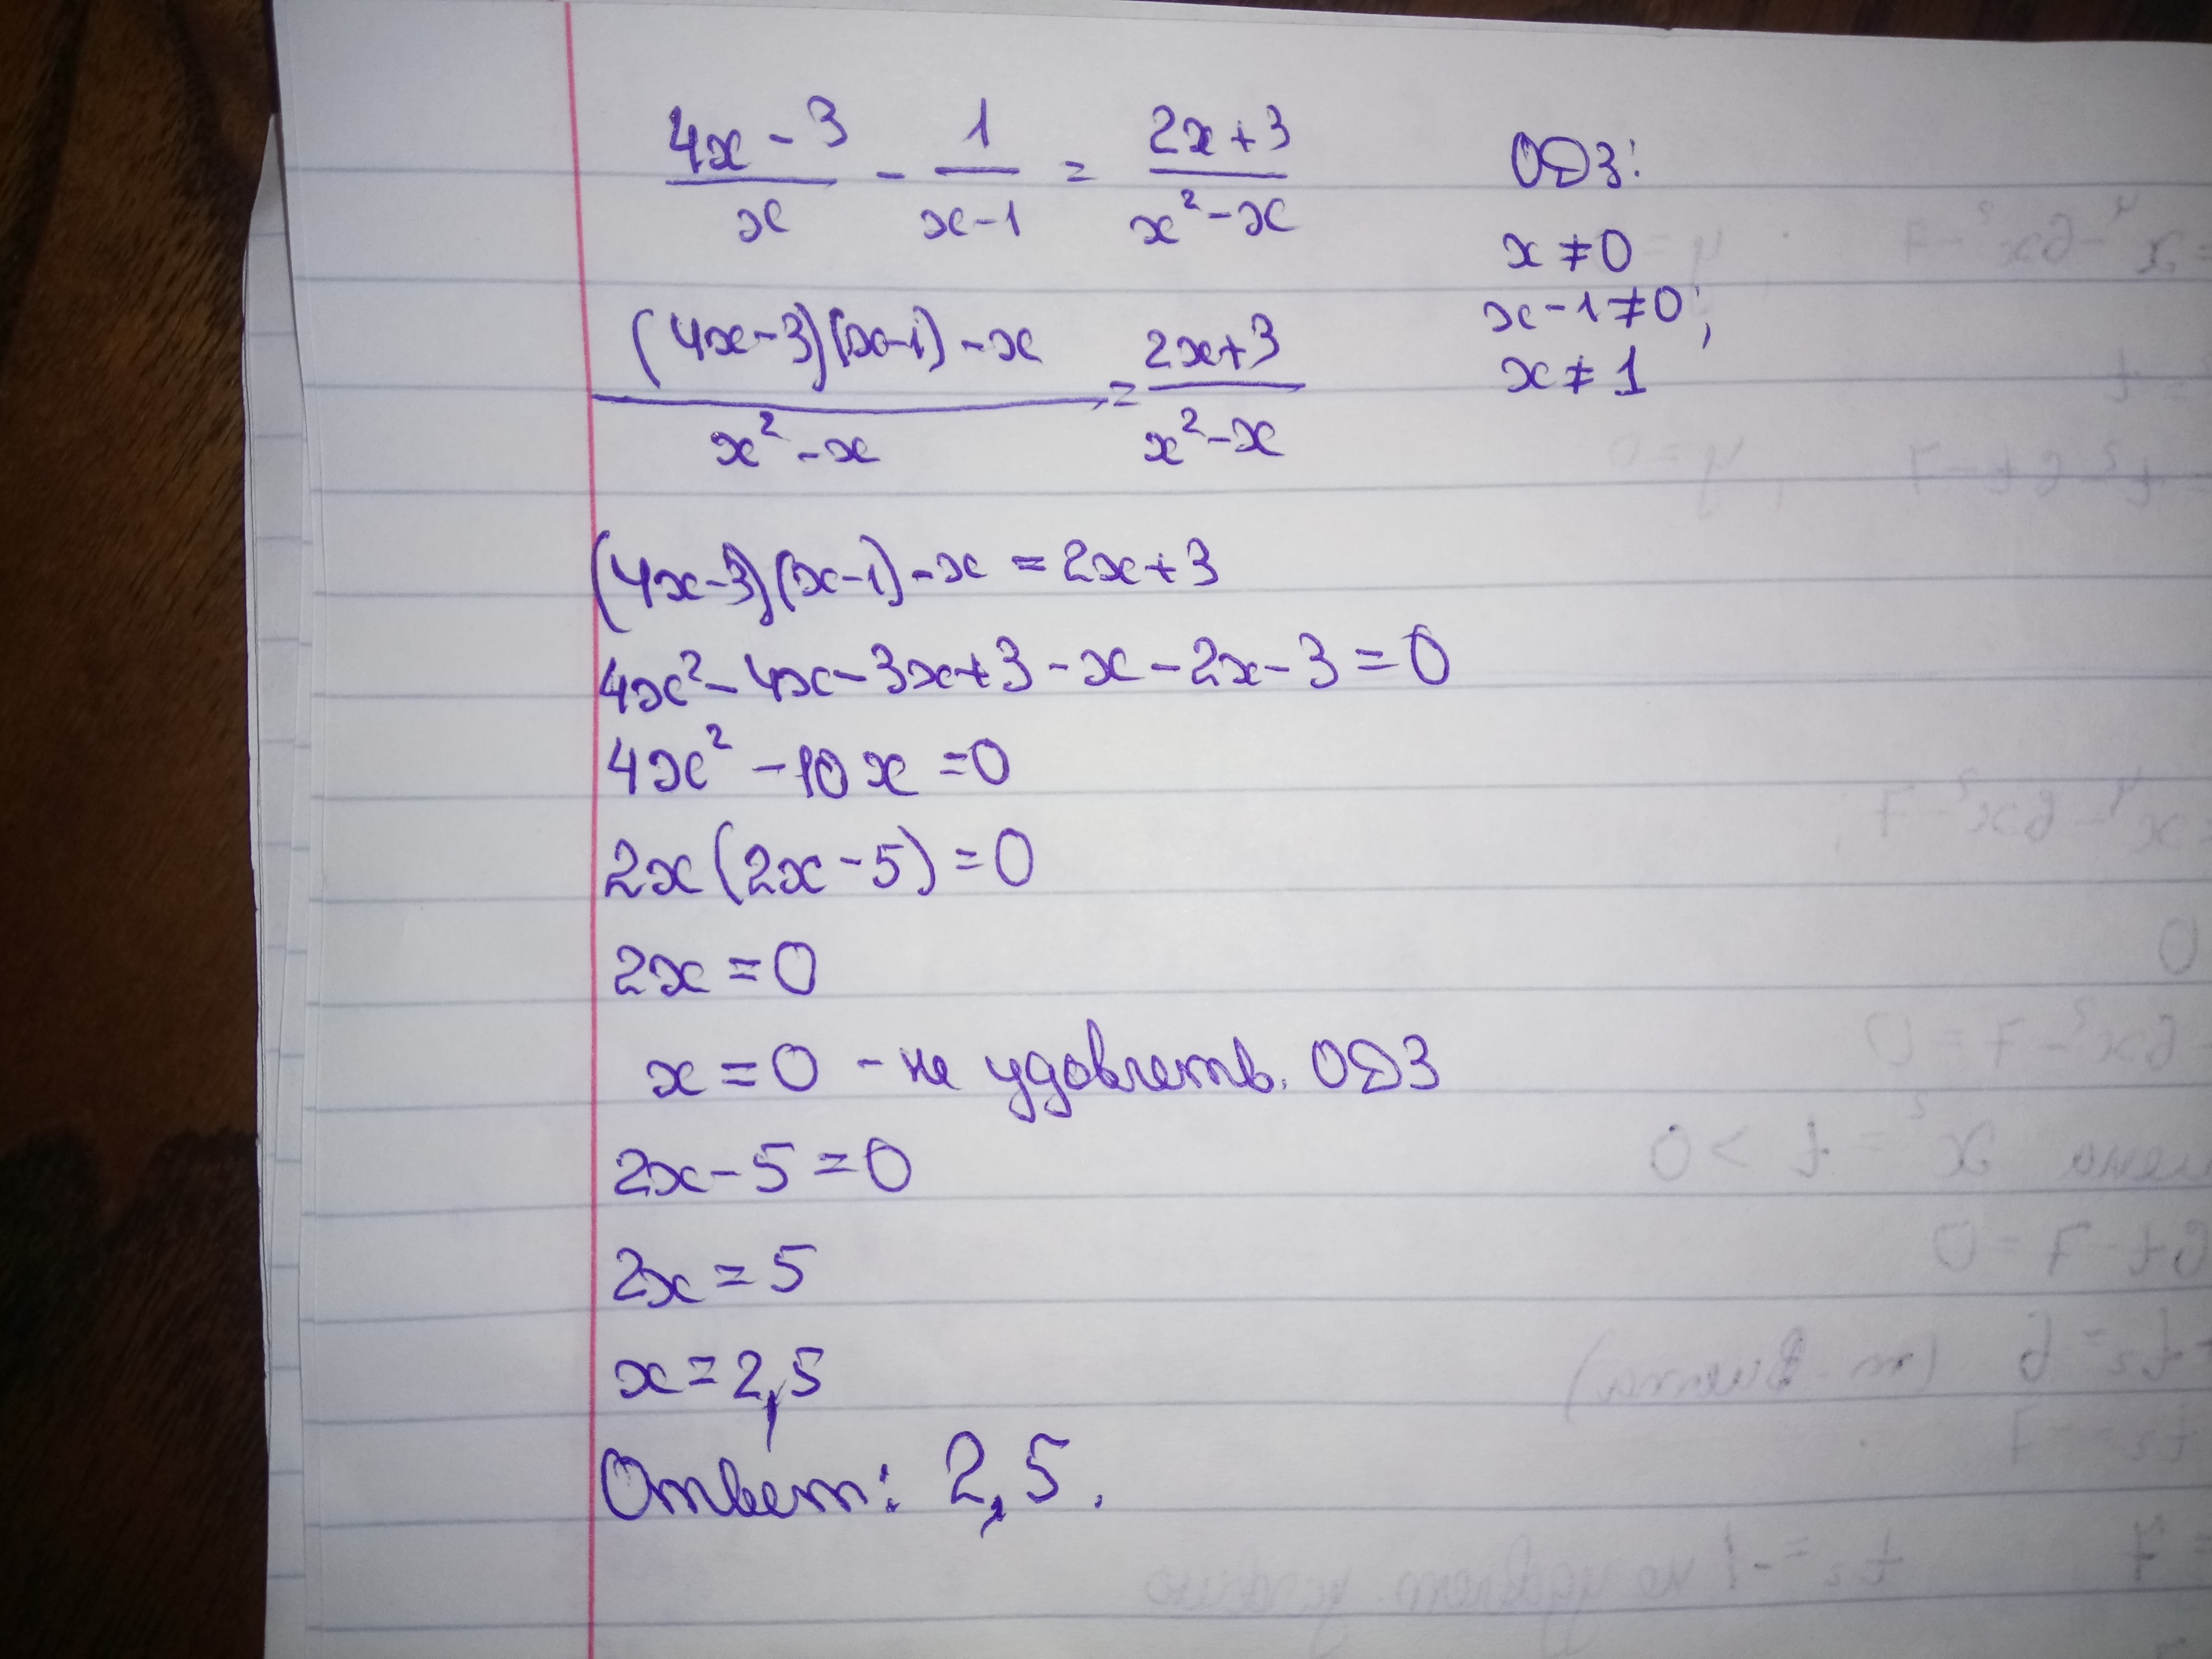 (4x-3)/x - 1/(x-1) = (2x+3)/(x²-x)
ОДЗ:
x ≠ 0
x-1 ≠ 0;
x ≠ 1
((4x-3)(x-1)-x)/(x²-x) = (2x+3)/(x²-x)
(4x-3)(x-1)-x = 2x+3
4x²-4x-3x+3-x-2x-3=0
4x²-10x=0
2x(2x-5)=0
2x=0
x=0 - не удовлетв. ОДЗ
2x-5=0
2x=5
x=2,5
Ответ: 2,5.